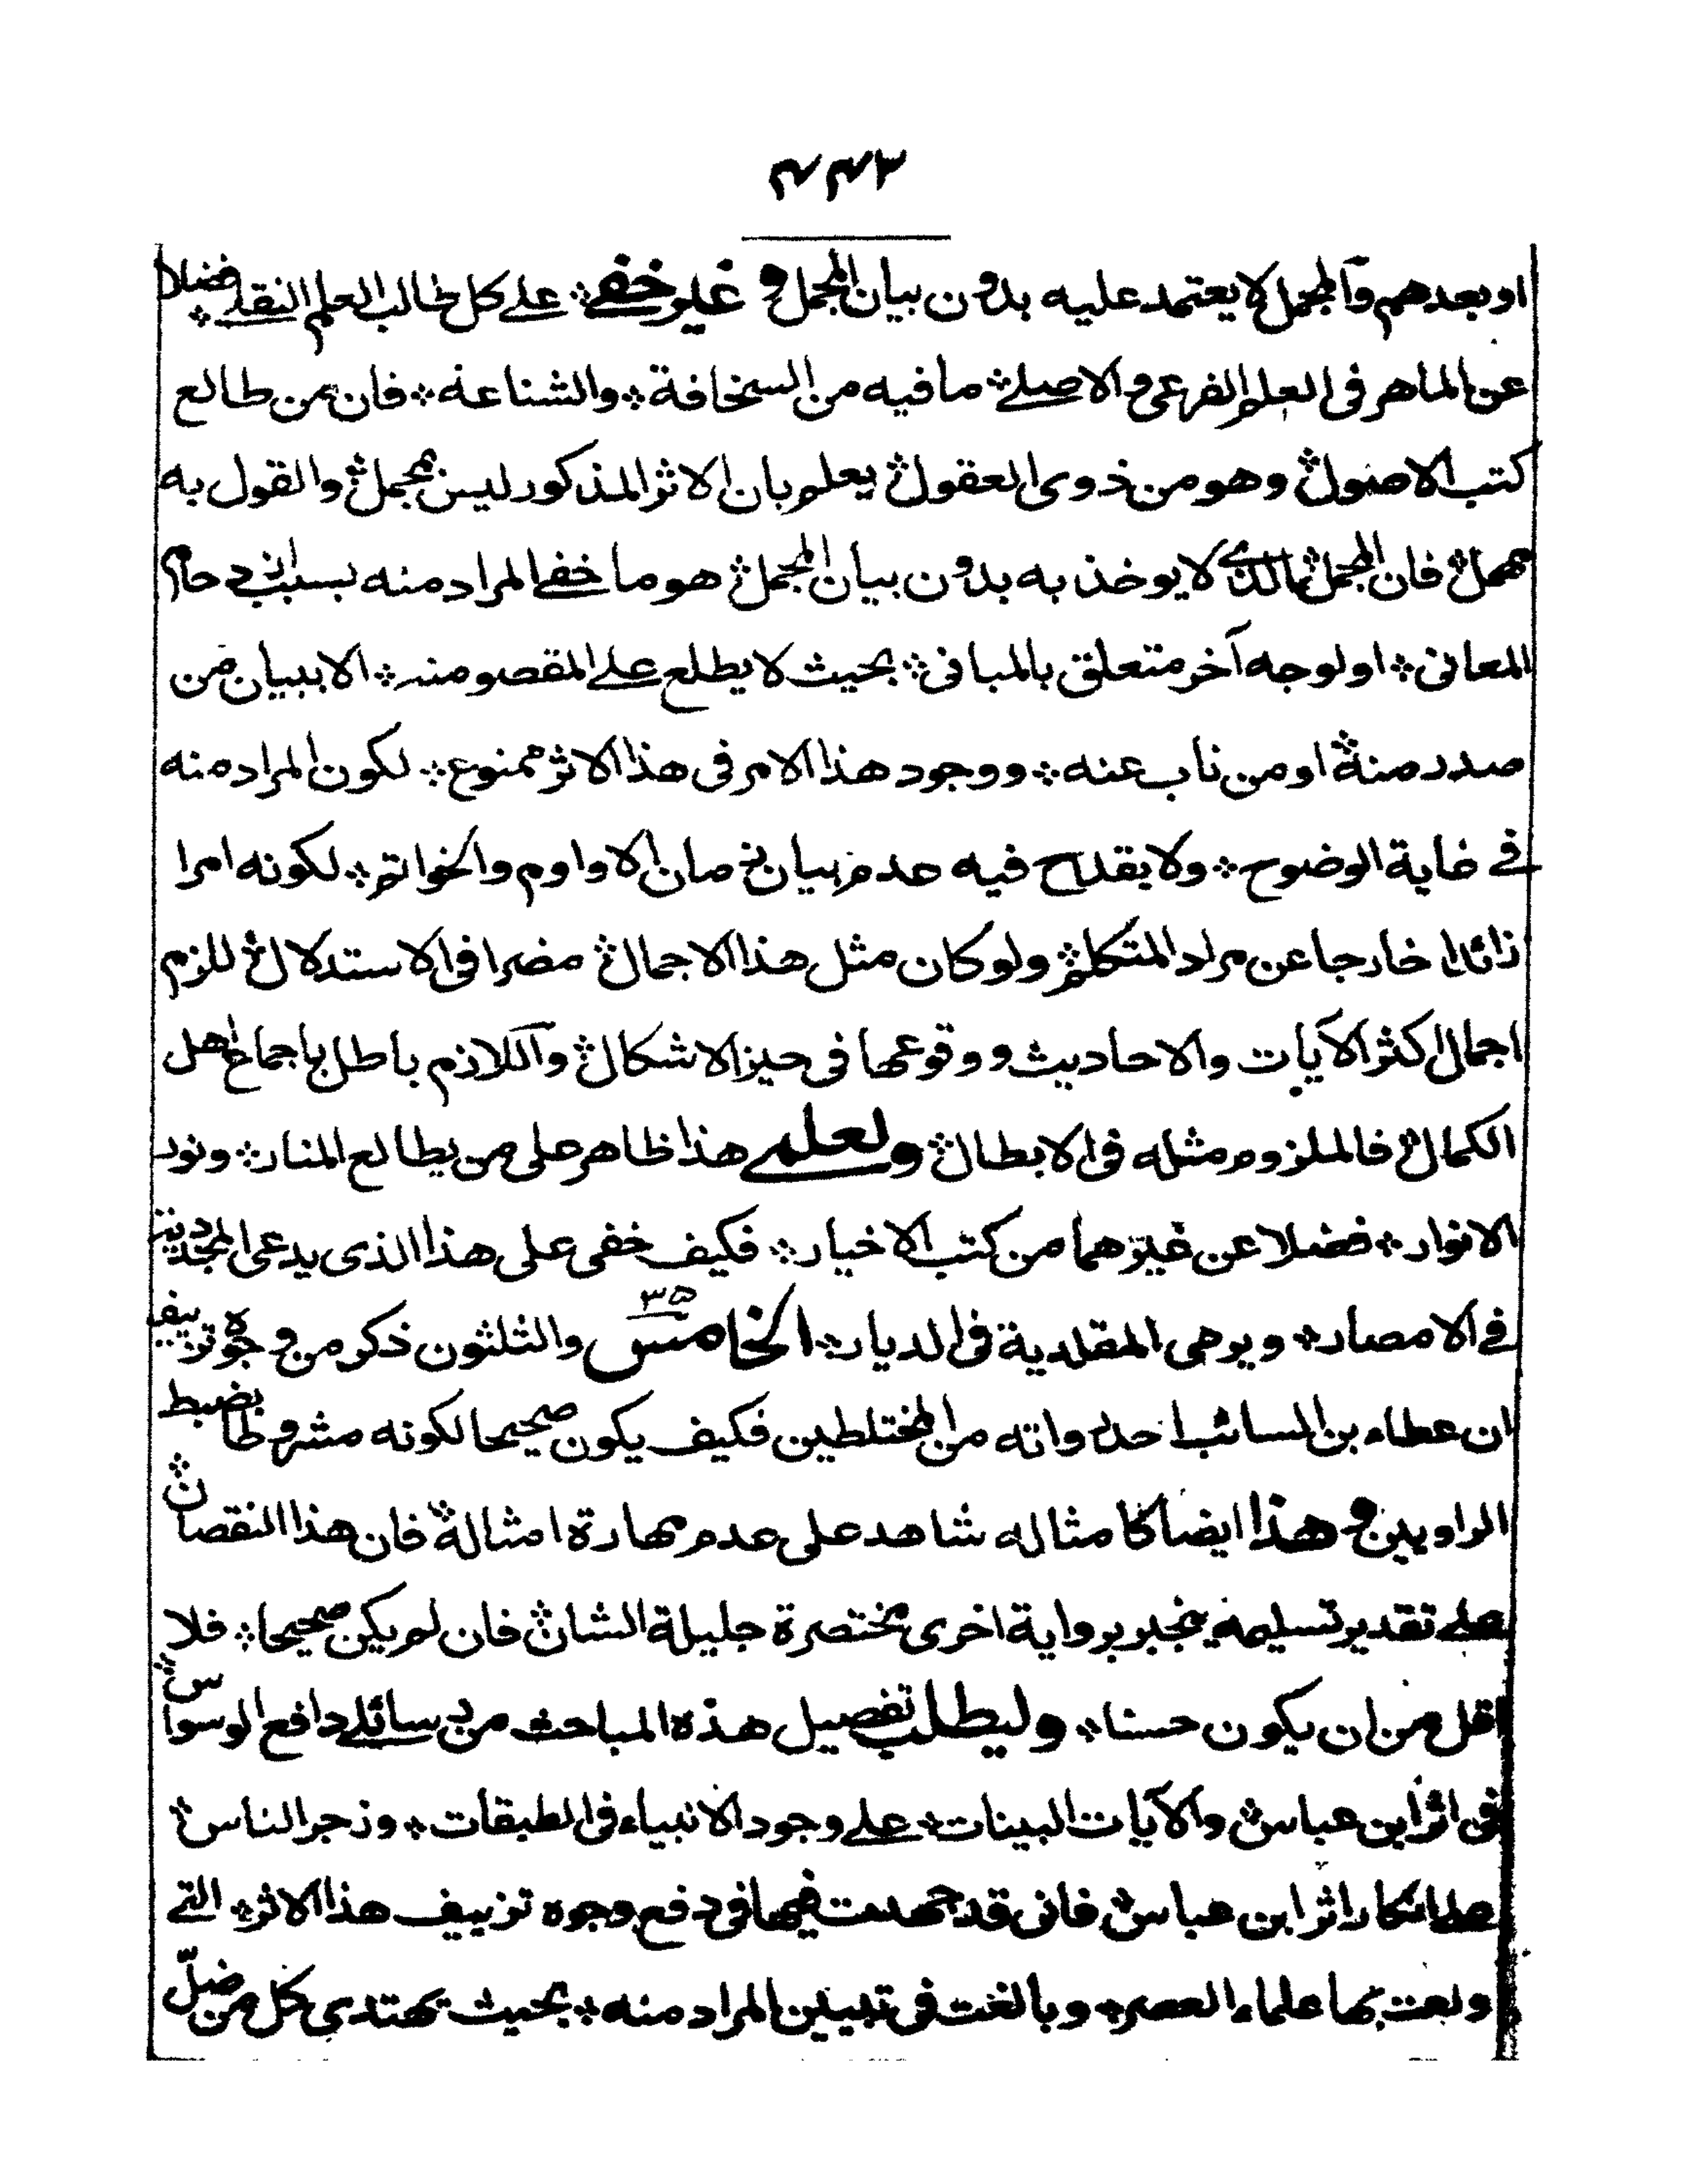 ٣٤٤
او بعدهم وآلمجمل لا يعتمد عليه بدون بيان المجمل و غير خفے؞ علے كل طالب العلم النقلے؞ فضلا
عن الماهر فى العلم الفرعى والاصلے؞ ما فيه من السخافة؞ والشناعة؞ فان من طالع
كتب الاصول؞ وهو من ذوى العقول؞ يعلم بان الاثر المذكور ليس بمجمل؞ والقول به
مهمل؞ فان المجمل؞ الذے لا يوخذ به بدون بيان المجمل؞ هو ما خفے المراد منه بسبب تزاحم
المعانى؞ او لوجه آخر متعلق بالمبانى؞ بحيث لا يطلع علے المقصو منه؞ الا ببيان من
صدر منه؞ او من ناب عنه؞ ووجود هذا الامر فى هذا الاثر ممنوع؞ لكون المراد منه
فے غاية الوضوح؞ ولا يقدح فيه عدم بيان زمان الاواوم والخواتم؞ لكونه امرا
زائدا خارجا عن مراد المتكلم؞ ولو كان مثل هذا الاجمال؞ مضرا فى الاستدلال؞ للزم
اجمال اكثر الآيات والاحاديث ووقوعها فى حيز الاشكال؞ وآللازم باطل باجماع اهل
الكمال؞ فالملزوم مثله فى الابطال؞ ولعلمے هذا ظاهر على من يطالع المنار؞ ونور
الانوار؞ فضلا عن غيرهما من كتب الاخيار؞ فكيف خفى على هذا الذى يدعى المجددية
فے الامصار؞ ويرمى المقلدية فى الديار؞ الخامس ٣٥ والثلثون ذكر من وجوه تزييف
ان عطاء بن السائب احد رواته من المختلطين فكيف يكون صحيحا لكونه مشروطا بضبط
الراويين؞ وهذا ايضا كامثاله شاهد على عدم مهارة امثاله؞ فان هذا النقصان؞
علے تقدير تسليمه ينجبر برواية اخرى مختصرة جليلة الشان؞ فان لم يكن صحيحا؞ فلا
اقل من ان يكون حسنا؞ وليطلب تفصيل هذه المباحث من رسائلے دافع الوسواس؞
فى اثر ابن عباس؞ والآيات البينات؞ علے وجود الانبياء فى الطبقات؞ وزجر الناس؞
علے انكار اثر ابن عباس؞ فانى قد جهدت فيها فى دفع وجوه تزييف هذا الاثر؞ التے
ولعت بها علماء العصر؞ وبالغت فى تبيين المراد منه؞ بحيث يهتدى كل من ضلّ